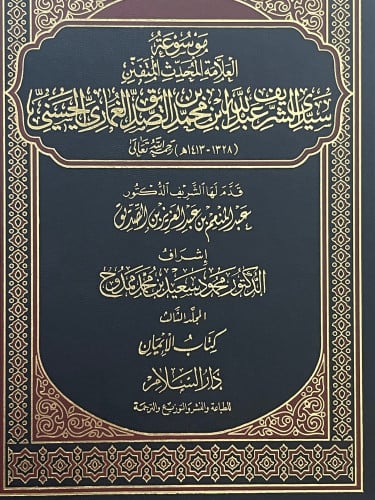 موسوعة
العلامة المحدث المتفنن
سيدي الشريف عبد الله ابن محمد بن الصديق الغماري الحسني
(١٣٢٨-١٤١٣هـ) رحمه الله تعالى
قدم لها الشريف الدكتور
عبد المنعم بن عبد العزيز بن الصديق
إشراف
الدكتور محمود سعيد بن محمد ممدوح
المجلد الثالث
كتاب الإيمان
دار السلام
للطباعة والنشر والتوزيع والترجمة